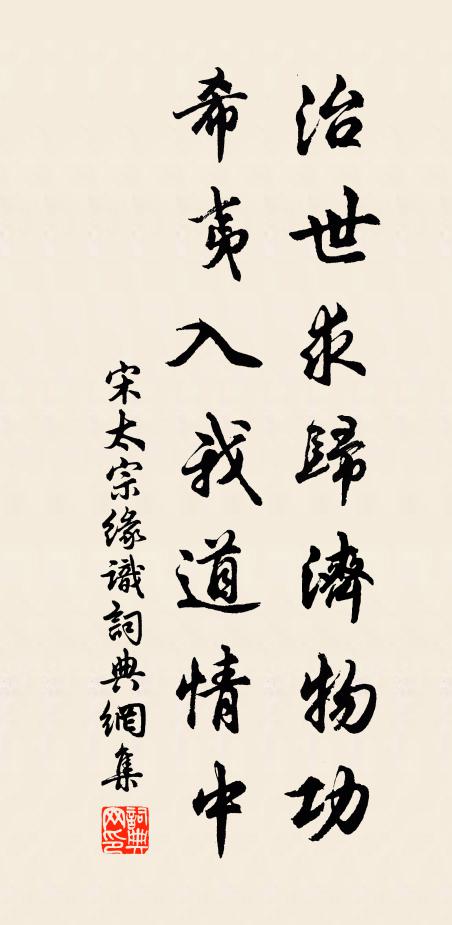 治世求歸濟物功
希夷入我道情中
宋太宗緣識詞典網集
詞典网印